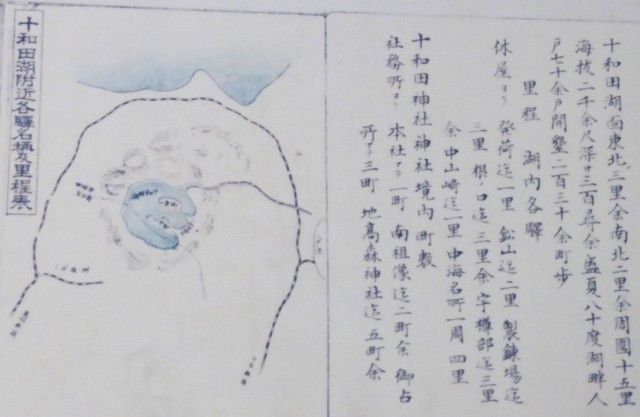 十和田湖面東北三里余南北二里余周囲十五里
海抜二千余尺深サ三百尋余盛夏八十度湖畔人
戸七十余戸開墾二百三十余町歩
里程 湖内各驛
休屋ヨリ 発荷迄一里 鉛山迄二里 製錬場迄
三里 根ノ口迄三里余 宇樽部迄三里
余 中山崎迄一里 中海名所一周四里
十和田神社 神社境内町数
社務所ヨリ 本社マテ一町 南祖像迄二町余 御占
所マテ三町 地高森神社迄五町余
十和田湖附近各驛名稱及里程表